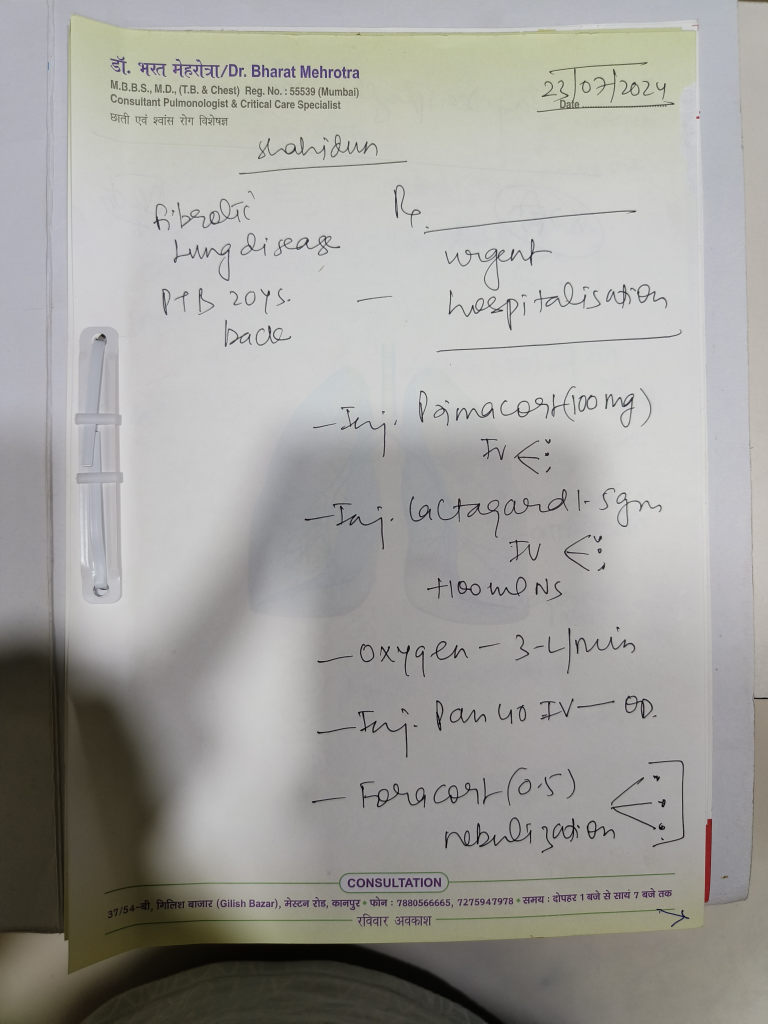 डॉ. भरत मेहरोत्रा/Dr. Bharat Mehrotra
M.B.B.S., M.D., (T.B. & Chest) Reg. No. : 55539 (Mumbai)
Consultant Pulmonologist & Critical Care Specialist
छाती एवं श्वांस रोग विशेषज्ञ
23/07/2024
Date
Shahidun
Fibrotic
Lung disease
PTB 20ys.
back
Rx
urgent
— hospitalisation
— Inj. Primacort (100mg)
IV
— Inj. Lactagard 1.5gm
IV
+100ml NS
— Oxygen — 3-L/min
— Inj. Pan 40 IV — OD.
— Foracort (0.5)
nebulization
CONSULTATION
37/54-बी, गिलिश बाजार (Gilish Bazar), मेस्टन रोड, कानपुर • फोन : 7880566665, 7275947978 • समय : दोपहर 1 बजे से सायं 7 बजे तक
रविवार अवकाश